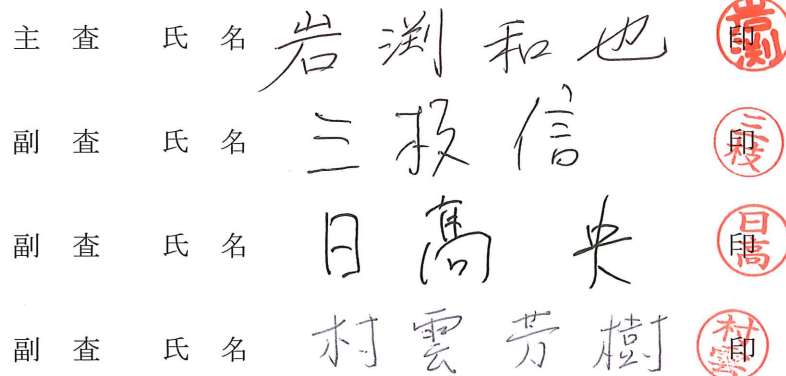 主査 氏名 岩渕和也 印 岩渕
副査 氏名 三枝信 印 三枝
副査 氏名 日髙央 印 日高
副査 氏名 村雲芳樹 印 村雲